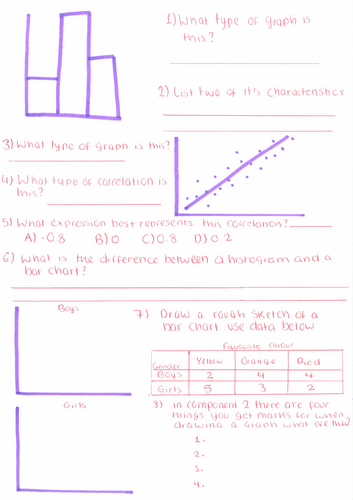 1) What type of graph is
this?
2) List two of it's characteristics
3) What type of graph is this?
4) What type of correlation is
this?
5) What expression best represents this correlation?
A) -0.8 B) 0 C) 0.8 D) 0.2
6) What is the difference between a histogram and a
bar chart?
Boys
7) Draw a rough sketch of a
bar chart use data below
Favourite colour
Gender Yellow Orange Red
Boys 2 4 4
Girls 5 3 2
Girls
8) in component 2 there are four
things you get marks for when
drawing a graph what are they
1.
2.
3.
4.